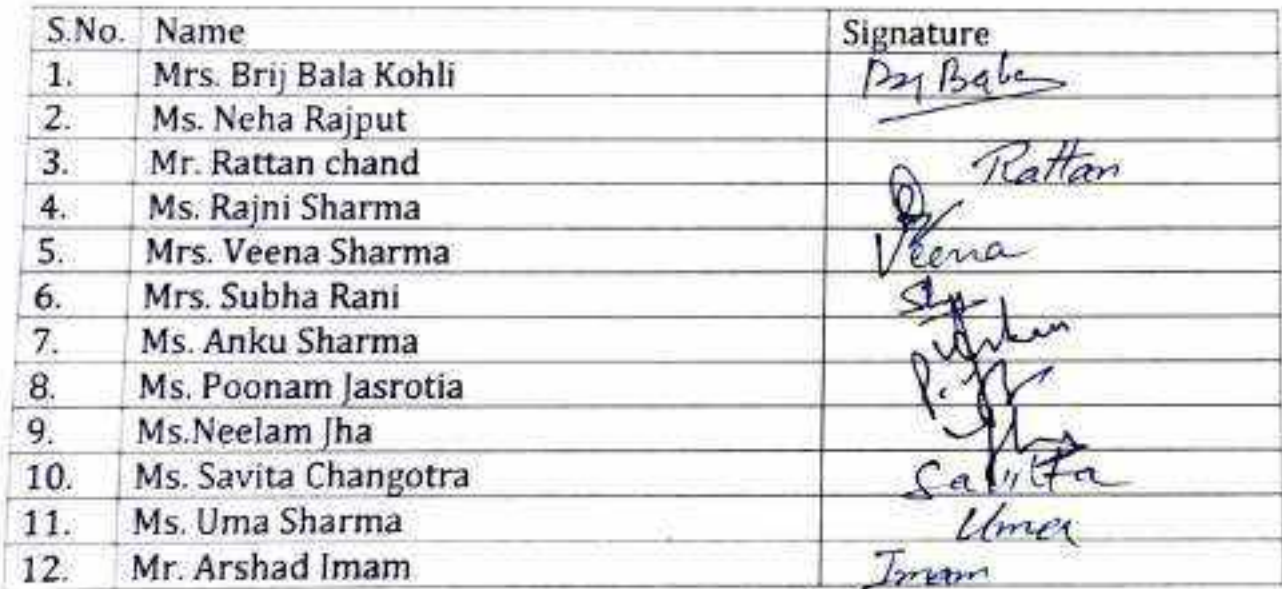 S.No. Name Signature
1. Mrs. Brij Bala Kohli Bala
2. Ms. Neha Rajput
3. Mr. Rattan chand Rattan
4. Ms. Rajni Sharma
5. Mrs. Veena Sharma Veena
6. Mrs. Subha Rani
7. Ms. Anku Sharma
8. Ms. Poonam Jasrotia
9. Ms.Neelam Jha
10. Ms. Savita Changotra Savita
11. Ms. Uma Sharma Uma
12. Mr. Arshad Imam Imam